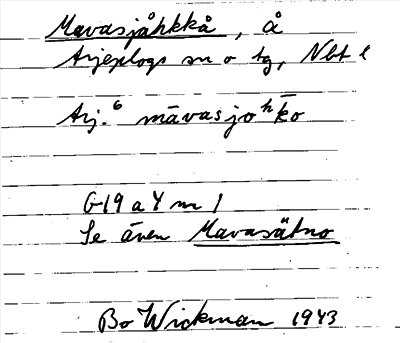 Mavasjåhkkå, å
Arjeplogs sn o tg, Nbt l
Arj.⁶ māvasjoʰk̄o
G19 a Y m 1
Se även Mavasätno
Bo Wickman 1943